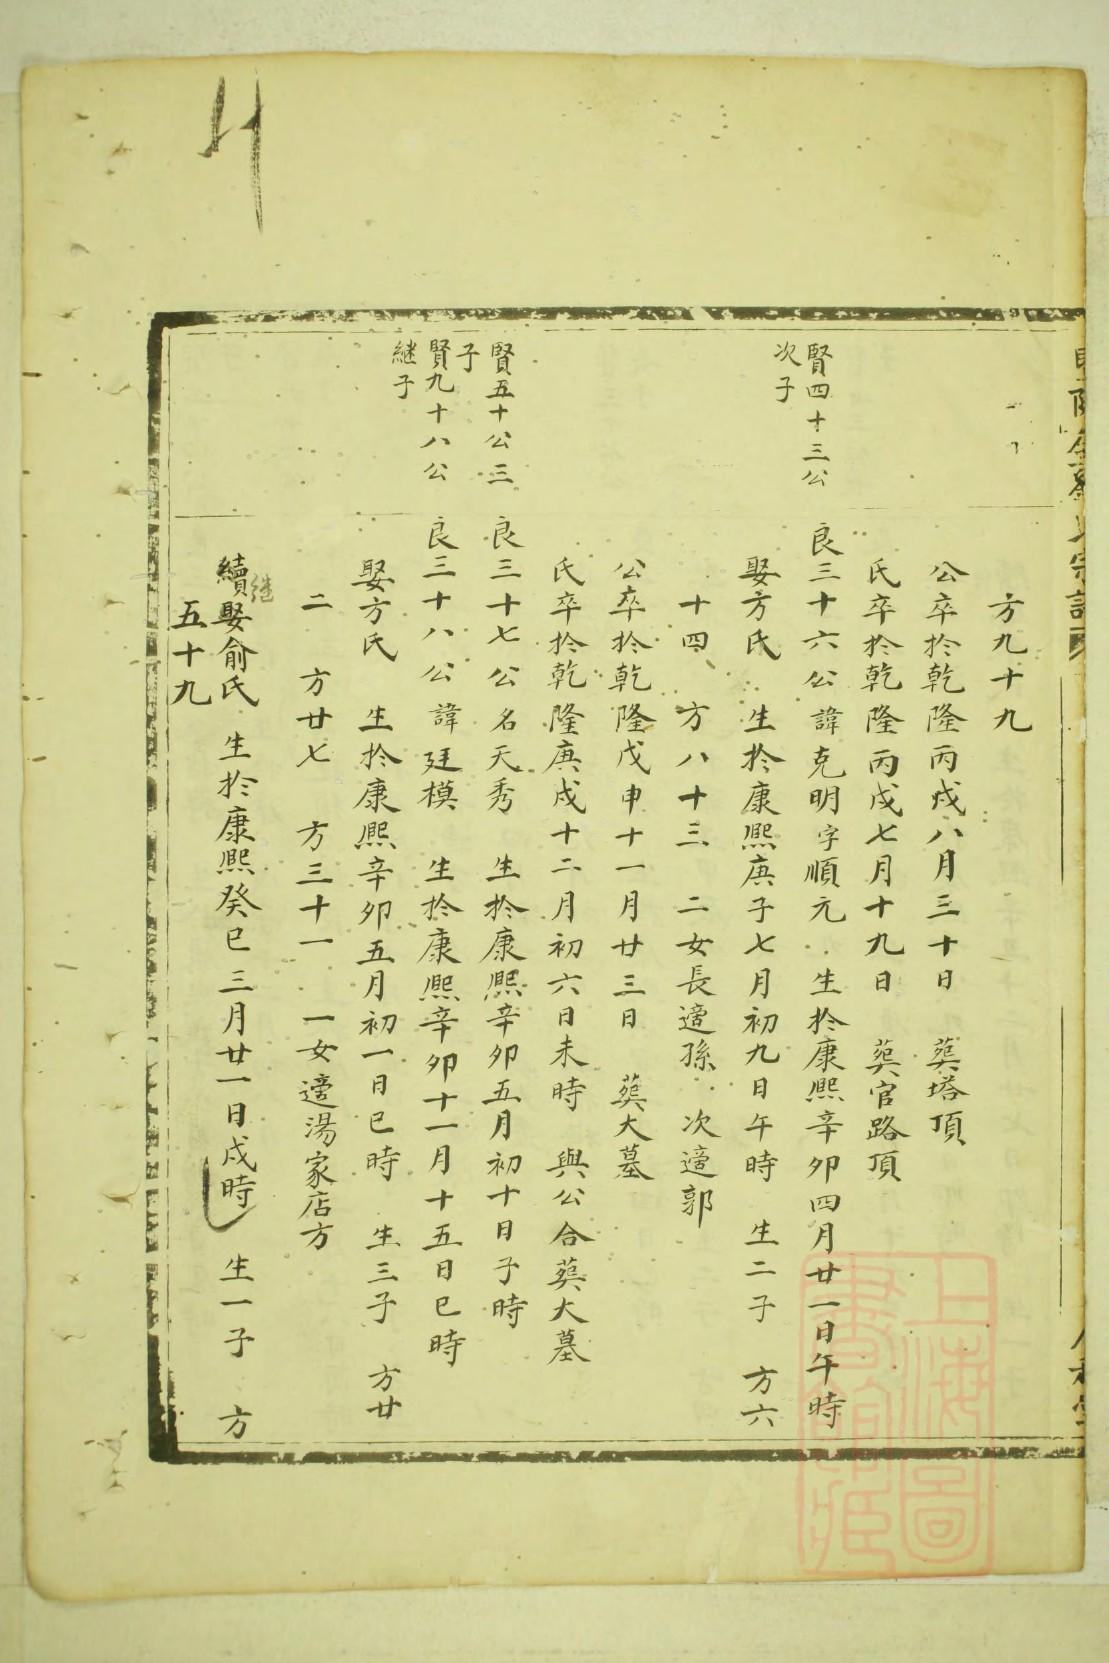 方九十九
公卒於乾隆丙戌八月三十日　葬塔頂
氏卒於乾隆丙戌七月十九日　葬官路頂
賢四十三公
次子
良三十六公諱克明字順元　生於康熙辛卯四月廿一日午時
娶方氏　生於康熙庚子七月初九日午時　生二子　方六
十四　方八十三　二女長適孫　次適郭
公卒於乾隆戊申十一月廿三日　葬大墓
氏卒於乾隆庚戌十二月初六日未時　與公合葬大墓
賢五十公三
子
良三十七公名天秀　生於康熙辛卯五月初十日子時
賢九十八公
継子
良三十八公諱廷模　生於康熙辛卯十一月十五日巳時
娶方氏　生於康熙辛卯五月初一日巳時　生三子　方廿
二　方廿七　方三十一　一女適湯家店方
續娶俞氏　生於康熙癸巳三月廿一日戌時　生一子　方
継
五十九
上海圖
書館藏